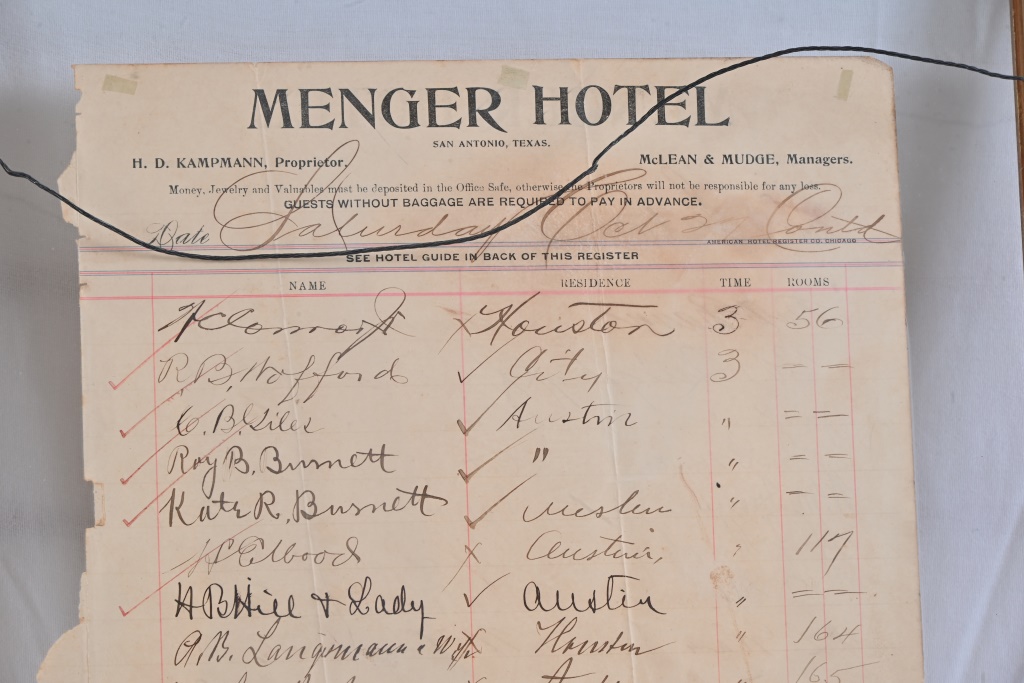 MENGER HOTEL
SAN ANTONIO, TEXAS.
H. D. KAMPMANN, Proprietor. McLEAN & MUDGE, Managers.
Money, Jewelry and Valuables must be deposited in the Office Safe, otherwise the Proprietors will not be responsible for any loss.
GUESTS WITHOUT BAGGAGE ARE REQUIRED TO PAY IN ADVANCE.
Date Saturday Oct 2 Contd
AMERICAN HOTEL REGISTER CO. CHICAGO
SEE HOTEL GUIDE IN BACK OF THIS REGISTER
NAME RESIDENCE TIME ROOMS
Houston 3 56
R. B. Wofford City 3 — —
C. B. Giles Austin " = =
Roy B. Burnett " " = =
Kate R. Burnett Austin " = =
Austin, " 117
H B Hill & Lady Austin " = =
A. B. Langermann & Wife Houston " 164
165